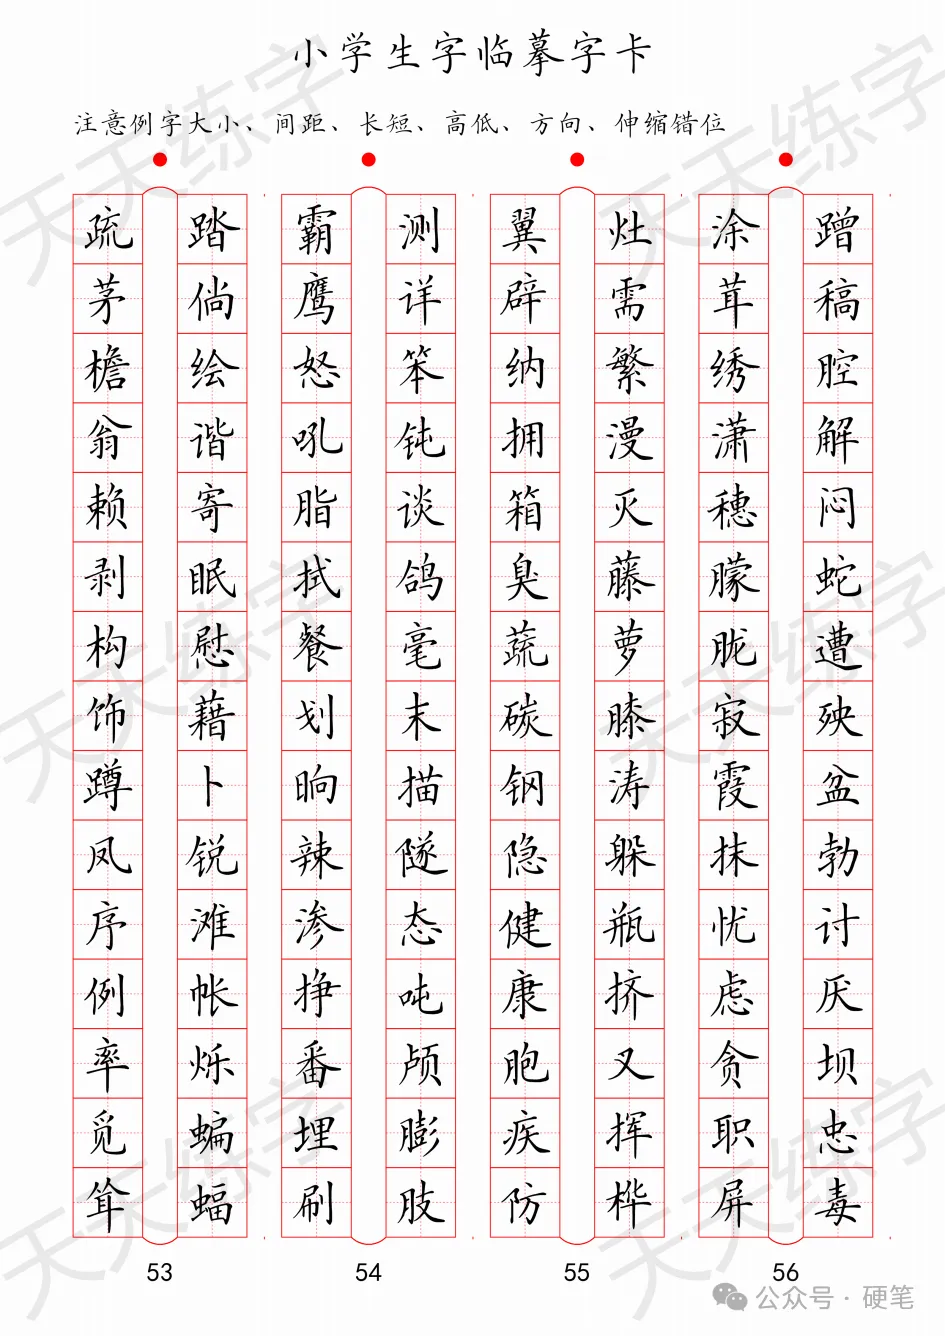 小学生字临摹字卡
注意例字大小、间距、长短、高低、方向、伸缩错位
疏 踏 霸 测 翼 灶 涂 蹭
茅 倘 鹰 详 辟 需 茸 稿
檐 绘 怒 笨 纳 繁 绣 腔
翁 谐 吼 钝 拥 漫 潇 解
赖 寄 脂 谈 箱 灭 穗 闷
剥 眠 拭 鸽 臭 藤 朦 蛇
构 慰 餐 毫 蔬 萝 胧 遭
饰 藉 划 末 碳 膝 寂 殃
蹲 卜 晌 描 钢 涛 霞 盆
凤 锐 辣 隧 隐 躲 抹 勃
序 滩 渗 态 健 瓶 忧 讨
例 帐 挣 吨 康 挤 虑 厌
率 烁 番 颅 胞 叉 贪 坝
觅 蝙 埋 膨 疾 挥 职 忠
耸 蝠 刷 肢 防 桦 屏 毒
53 54 55 56
公众号·硬笔
天天练字
天天练字
天天练字
天天练字
天天练字
天天练字